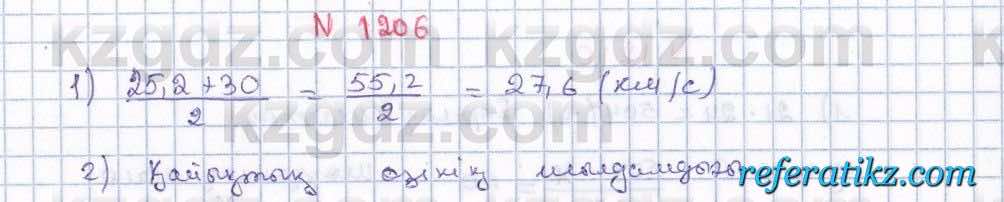 N 1206
1) 25,2+30 / 2 = 55,2 / 2 = 27,6 (км/с)
2) Қайықтың өзінің жылдамдығы
kzgdz.com kzgdz.com
kzgdz.com
kzgdz.com
referatikz.com